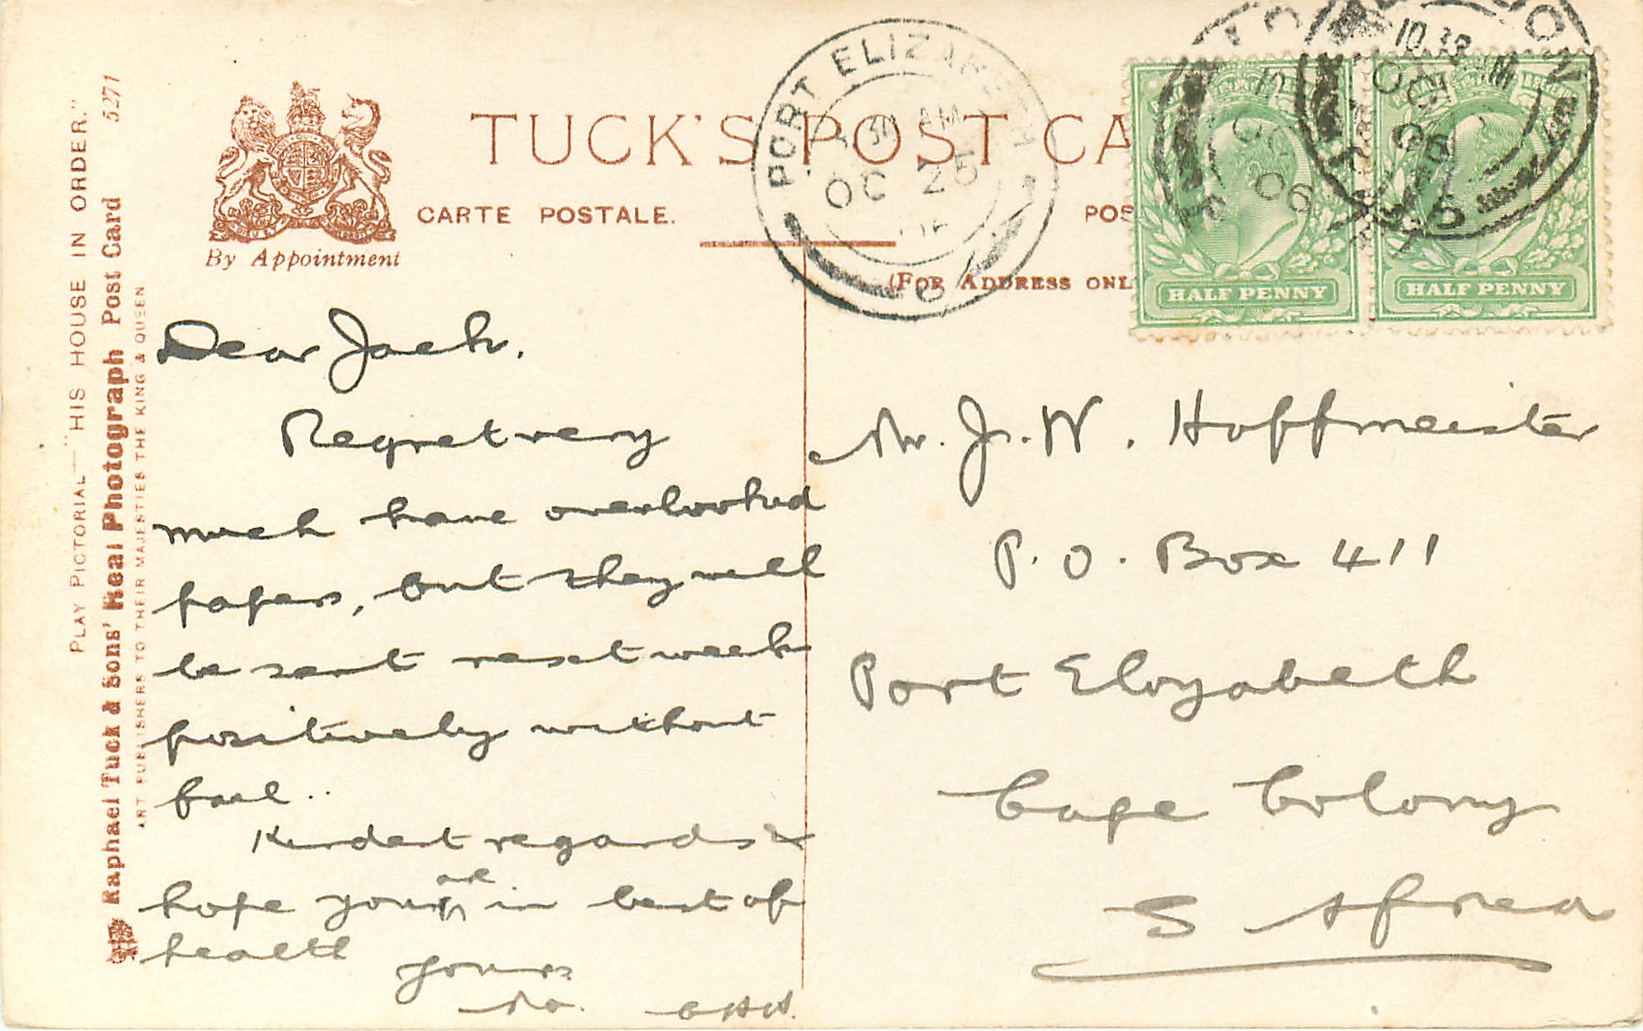 TUCK'S POST CA
CARTE POSTALE.
POS
(FOR ADDRESS ONL
By Appointment
PLAY PICTORIAL—"HIS HOUSE IN ORDER."
Raphael Tuck & Sons' Real Photograph Post Card 5271
ART PUBLISHERS TO THEIR MAJESTIES THE KING & QUEEN
PORT ELIZABETH
30 AM
OC 25
10.30 AM
OC
06
HALF PENNY
HALF PENNY
Dear Jack.
Regret very
much have overlooked
papers, but they will
be sent next week
positively without
fail..
Kindest regards &
hope you are in best of
health
Yours
Mr. J. W. Hoffmeister
P. O. Box 411
Port Elizabeth
Cape Colony
S Africa